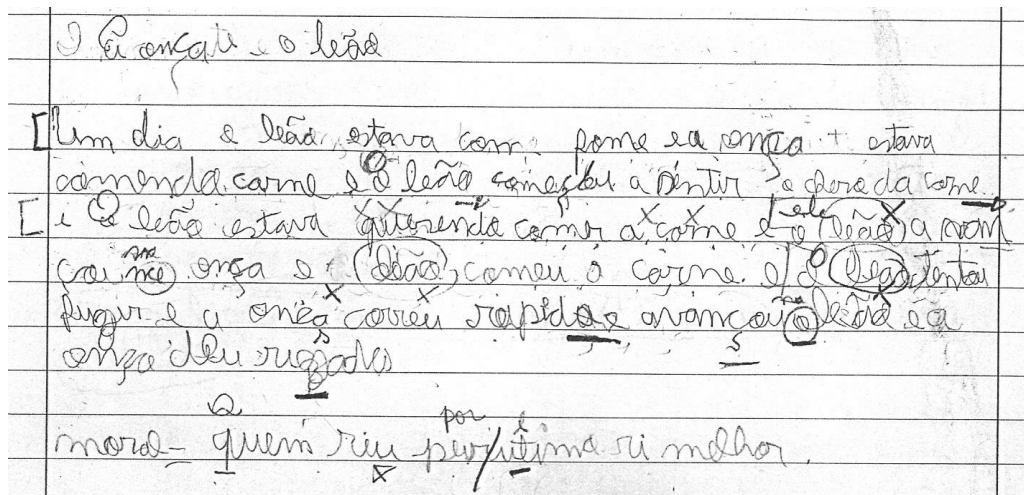 o leão
Um dia o leão estava com fome e a onça estava
comendo carne e o leão começou a sentir o da carne
e o leão estava comer a carne e o ele leão a
sou na onça e o leão comeu o carne e o leão tentou
fugir e a onça correu rapida e avançou no o leão e a
onça deu
moral - quem riu por utima ri melhor.